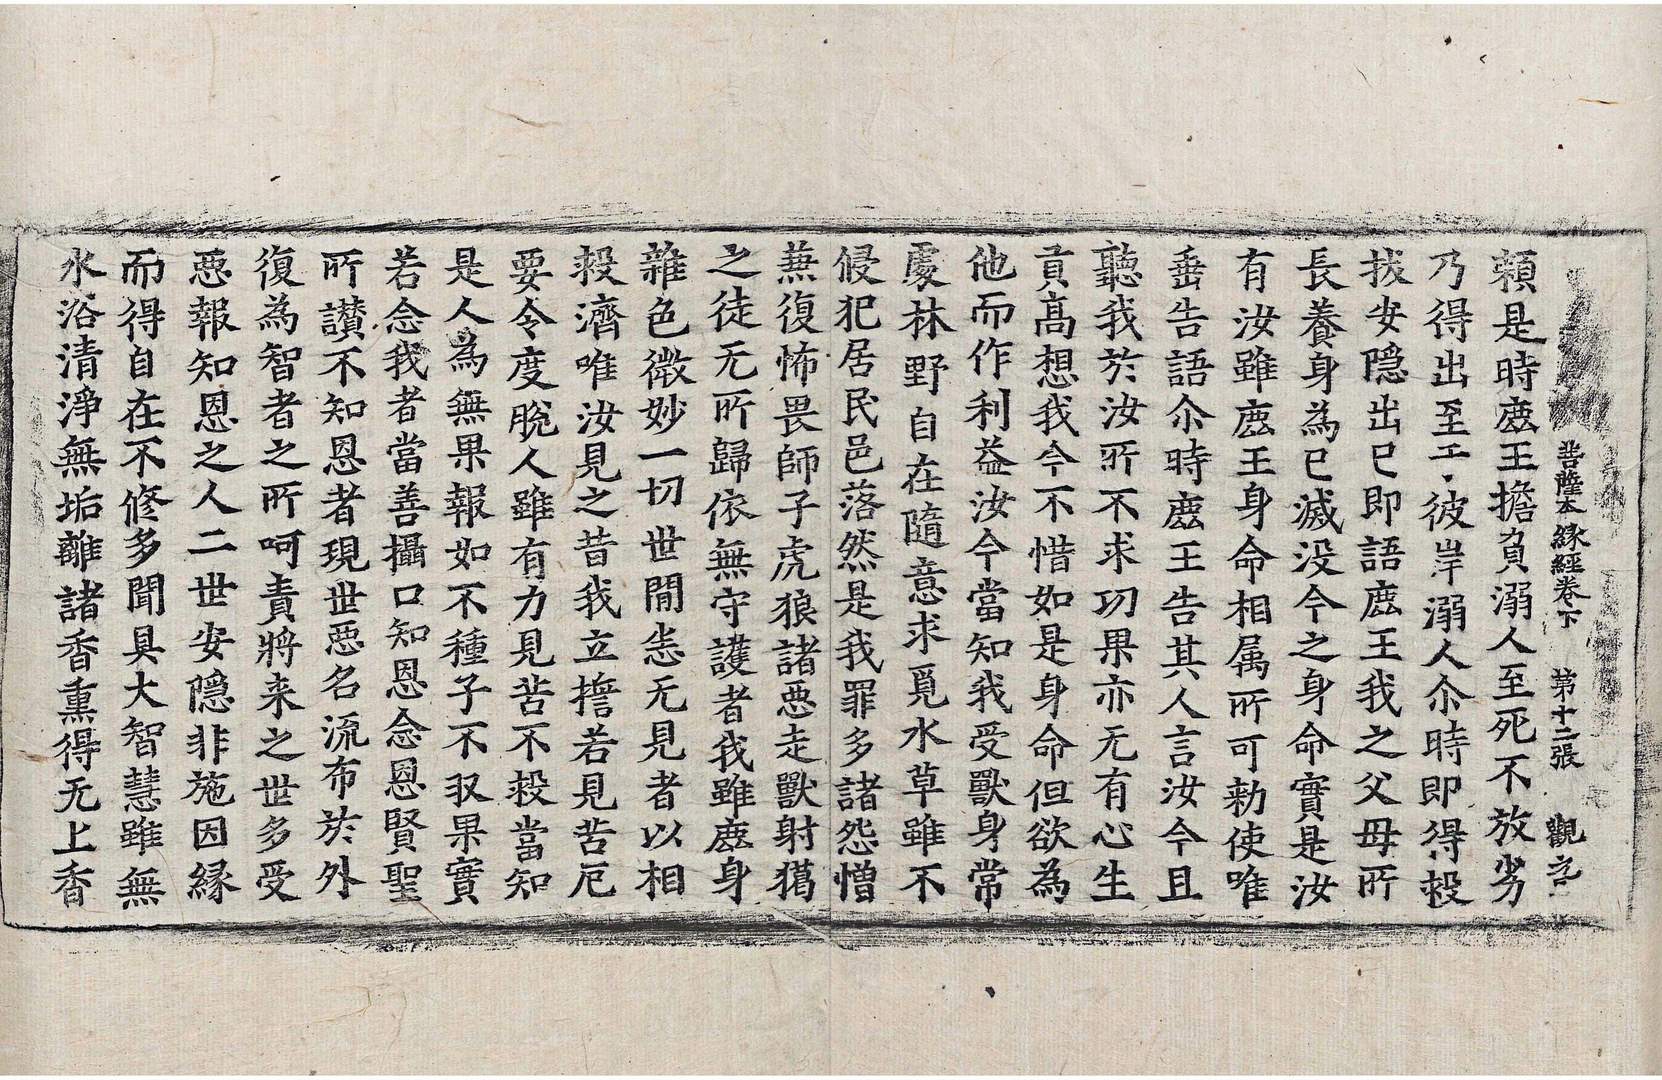 菩薩本緣經卷下 第十二張 觀
頼是時鹿王擔負溺人至死不放劣
乃得出至工彼岸溺人尒時即得救
拔安隱出已即語鹿王我之父母所
長養身為已滅没今之身命實是汝
有汝雖鹿王身命相属所可勑使唯
垂告語尒時鹿王告其人言汝今且
聽我於汝所不求功果亦无有心生
貢髙想我今不惜如是身命但欲為
他而作利益汝今當知我受獸身常
處林野自在隨意求覓水草雖不
侵犯居民邑落然是我罪多諸怨憎
兼復怖畏師子虎狼諸惡走獸射獦
之徒无所歸依無守護者我雖鹿身
雜色微妙一切世間恚无見者以相
救濟唯汝見之昔我立擔若見苦厄
要令度脫人雖有力見苦不救當知
是人為無果報如不種子不収果實
若念我者當善攝口知恩念恩賢聖
所讃不知恩者現世惡名流布於外
復為智者之所呵責將来之世多受
惡報知恩之人二世安隱非施因緣
而得自在不修多聞具大智慧雖無
水浴清淨無垢離諸香熏得无上香